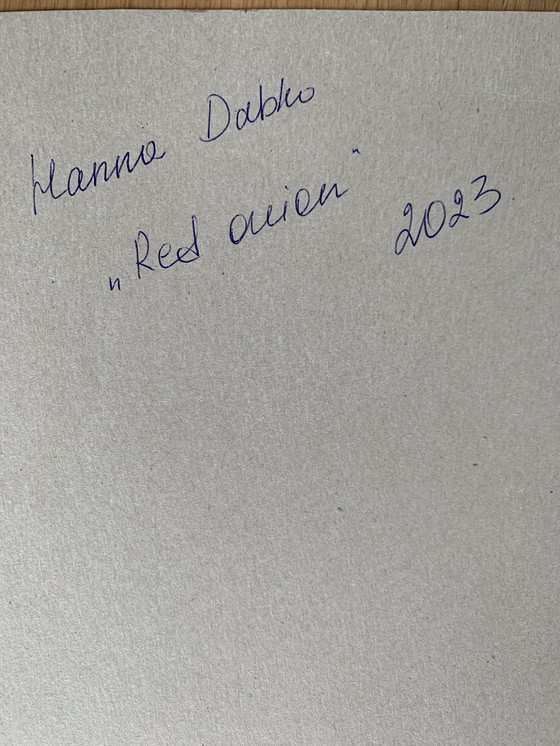 Hanna Dabko
„Red onion"
2023